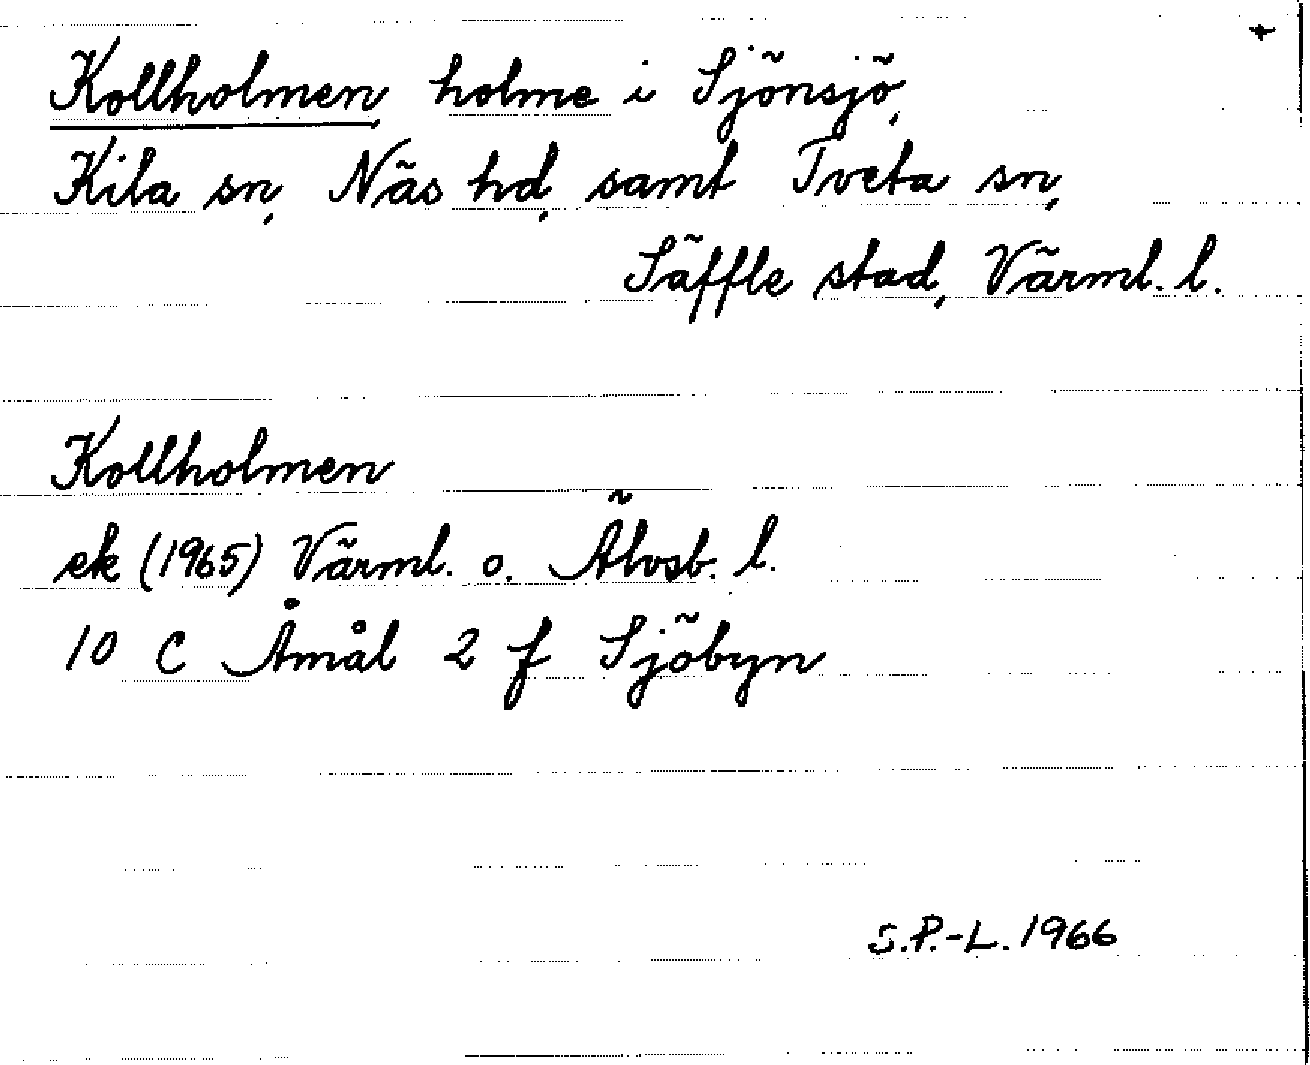 +
Kollholmen, holme i Sjönsjö,
Kila sn, Näs hd, samt Tveta sn,
Säffle stad, Värml. l.
Kollholmen
ek (1965) Värml. o. Älvsb. l.
10 C Åmål 2 f Sjöbyn
S.P.-L. 1966